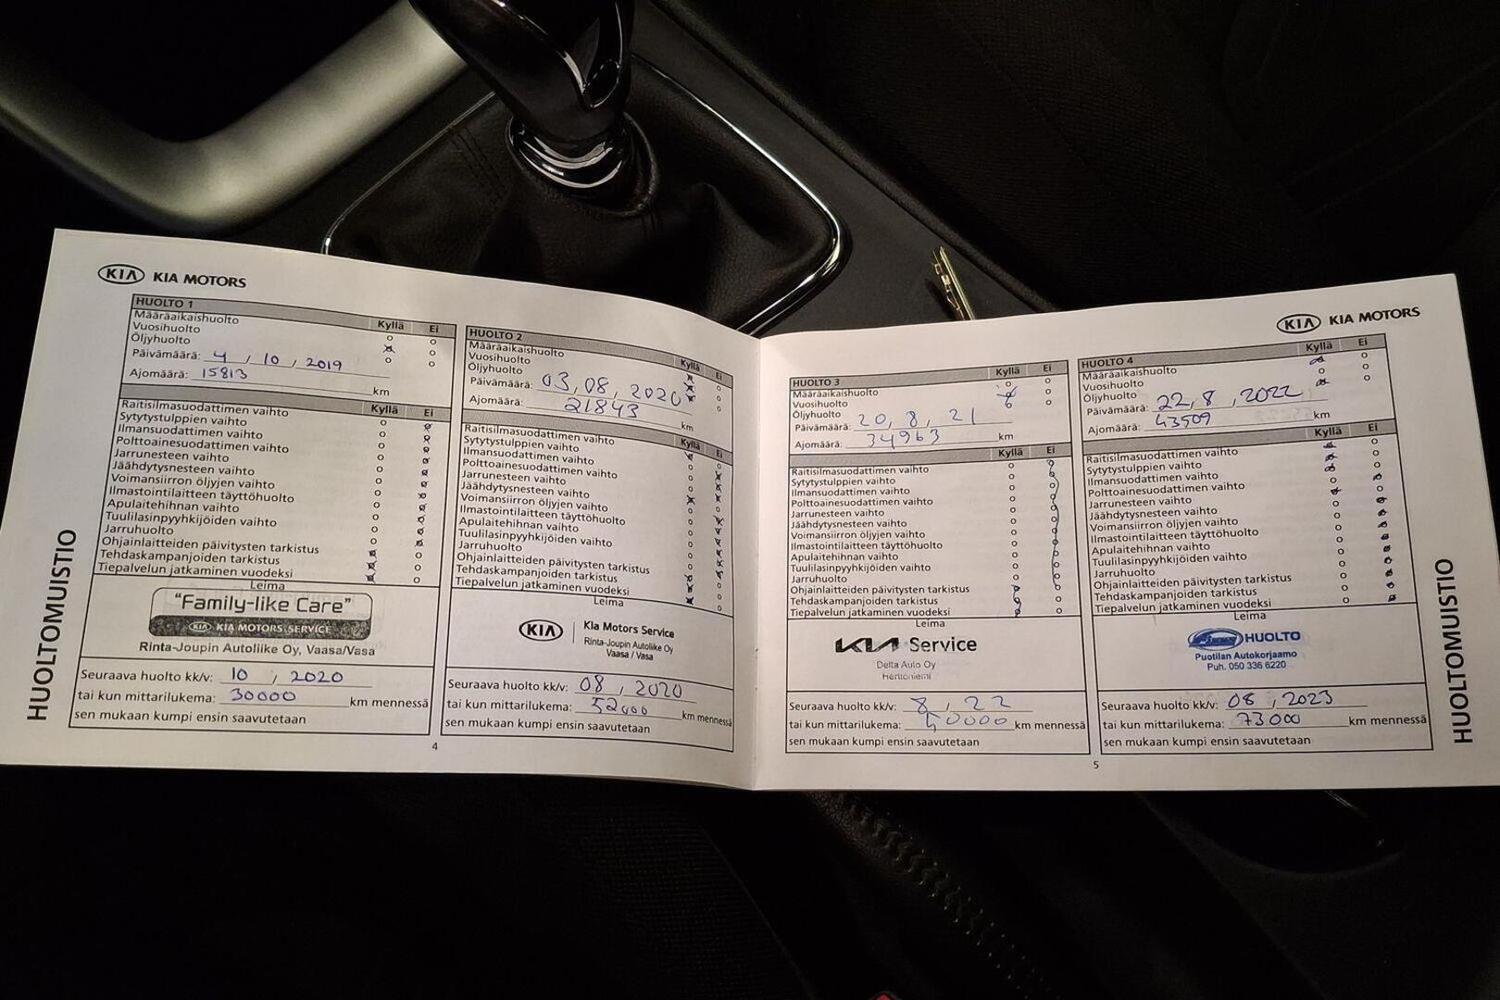 KIA KIA MOTORS
HUOLTOMUISTIO
HUOLTO 1
Kyllä Ei
Määräaikaishuolto
Vuosihuolto
Öljyhuolto
Päivämäärä: 4 , 10 , 2019
Ajomäärä: 15813 km
Kyllä Ei
Raitisilmasuodattimen vaihto
Sytytystulppien vaihto
Ilmansuodattimen vaihto
Polttoainesuodattimen vaihto
Jarrunesteen vaihto
Jäähdytysnesteen vaihto
Voimansiirron öljyjen vaihto
Ilmastointilaitteen täyttöhuolto
Apulaitehihnan vaihto
Tuulilasinpyyhkijöiden vaihto
Jarruhuolto
Ohjainlaitteiden päivitysten tarkistus
Tehdaskampanjoiden tarkistus
Tiepalvelun jatkaminen vuodeksi
Leima
"Family-like Care"
KIA KIA MOTORS SERVICE
Rinta-Joupin Autoliike Oy, Vaasa/Vasa
Seuraava huolto kk/v: 10 , 2020
tai kun mittarilukema: 30000 km mennessä
sen mukaan kumpi ensin saavutetaan
HUOLTO 2
Kyllä Ei
Määräaikaishuolto
Vuosihuolto
Öljyhuolto
Päivämäärä: 03, 08, 2020
Ajomäärä: 21843 km
Kyllä Ei
Raitisilmasuodattimen vaihto
Sytytystulppien vaihto
Ilmansuodattimen vaihto
Polttoainesuodattimen vaihto
Jarrunesteen vaihto
Jäähdytysnesteen vaihto
Voimansiirron öljyjen vaihto
Ilmastointilaitteen täyttöhuolto
Apulaitehihnan vaihto
Tuulilasinpyyhkijöiden vaihto
Jarruhuolto
Ohjainlaitteiden päivitysten tarkistus
Tehdaskampanjoiden tarkistus
Tiepalvelun jatkaminen vuodeksi
Leima
KIA Kia Motors Service
Rinta-Joupin Autoliike Oy
Vaasa / Vasa
Seuraava huolto kk/v: 08 , 2020
tai kun mittarilukema: 52000 km mennessä
sen mukaan kumpi ensin saavutetaan
4
KIA KIA MOTORS
HUOLTO 3
Kyllä Ei
Määräaikaishuolto
Vuosihuolto
Öljyhuolto
Päivämäärä: 20, 8, 21
Ajomäärä: 34963 km
Kyllä Ei
Raitisilmasuodattimen vaihto
Sytytystulppien vaihto
Ilmansuodattimen vaihto
Polttoainesuodattimen vaihto
Jarrunesteen vaihto
Jäähdytysnesteen vaihto
Voimansiirron öljyjen vaihto
Ilmastointilaitteen täyttöhuolto
Apulaitehihnan vaihto
Tuulilasinpyyhkijöiden vaihto
Jarruhuolto
Ohjainlaitteiden päivitysten tarkistus
Tehdaskampanjoiden tarkistus
Tiepalvelun jatkaminen vuodeksi
Leima
KIA Service
Delta Auto Oy
Herttoniemi
Seuraava huolto kk/v: 8 , 22
tai kun mittarilukema: km mennessä
sen mukaan kumpi ensin saavutetaan
HUOLTO 4
Kyllä Ei
Määräaikaishuolto
Vuosihuolto
Öljyhuolto
Päivämäärä: 22, 8 , 2022
Ajomäärä: 43509 km
Kyllä Ei
Raitisilmasuodattimen vaihto
Sytytystulppien vaihto
Ilmansuodattimen vaihto
Polttoainesuodattimen vaihto
Jarrunesteen vaihto
Jäähdytysnesteen vaihto
Voimansiirron öljyjen vaihto
Ilmastointilaitteen täyttöhuolto
Apulaitehihnan vaihto
Tuulilasinpyyhkijöiden vaihto
Jarruhuolto
Ohjainlaitteiden päivitysten tarkistus
Tehdaskampanjoiden tarkistus
Tiepalvelun jatkaminen vuodeksi
Leima
HUOLTO
Puotilan Autokorjaamo
Puh. 050 336 6220
Seuraava huolto kk/v: 08 , 2023
tai kun mittarilukema: 73000 km mennessä
sen mukaan kumpi ensin saavutetaan
5
HUOLTOMUISTIO